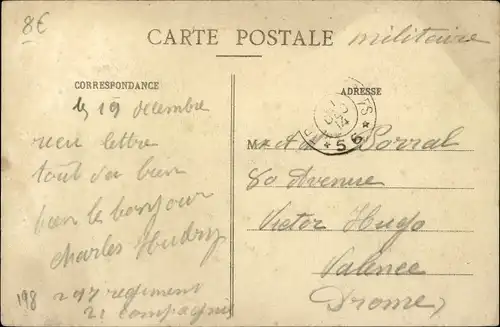 8€
CARTE POSTALE militaire
CORRESPONDANCE
le 19 decembre
recu lettre
tout va bien
bien le bonjour
Charles Hudry
297 regiment
21 compagnie
198
ADRESSE
14
*56*
M Porral
80 Avenue
Victor Hugo
Valence
Drome